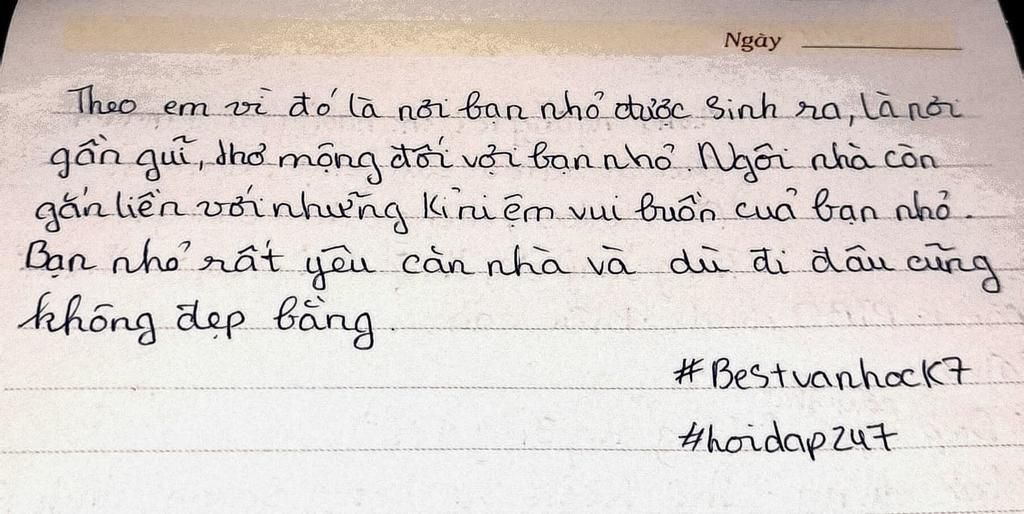 Ngày
Theo em vì đó là nơi bạn nhỏ được sinh ra, là nơi
gần gũi, thơ mộng đối với bạn nhỏ. Ngôi nhà còn
gắn liền với những kỉ niệm vui buồn của bạn nhỏ.
Bạn nhỏ rất yêu căn nhà và dù đi đâu cũng
không đẹp bằng.
#BestvanhocK7
#hoidap247